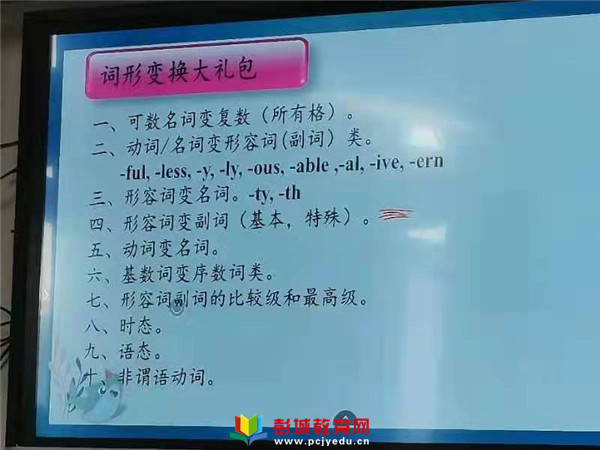 词形变换大礼包
一、可数名词变复数（所有格）。
二、动词/名词变形容词(副词）类。
-ful, -less, -y, -ly, -ous, -able ,-al, -ive, -ern
三、形容词变名词。-ty, -th
四、形容词变副词（基本，特殊）。
五、动词变名词。
六、基数词变序数词类。
七、形容词副词的比较级和最高级。
八、时态。
九、语态。
十、非谓语动词。
彭城教育网
www.pcjyedu.cn